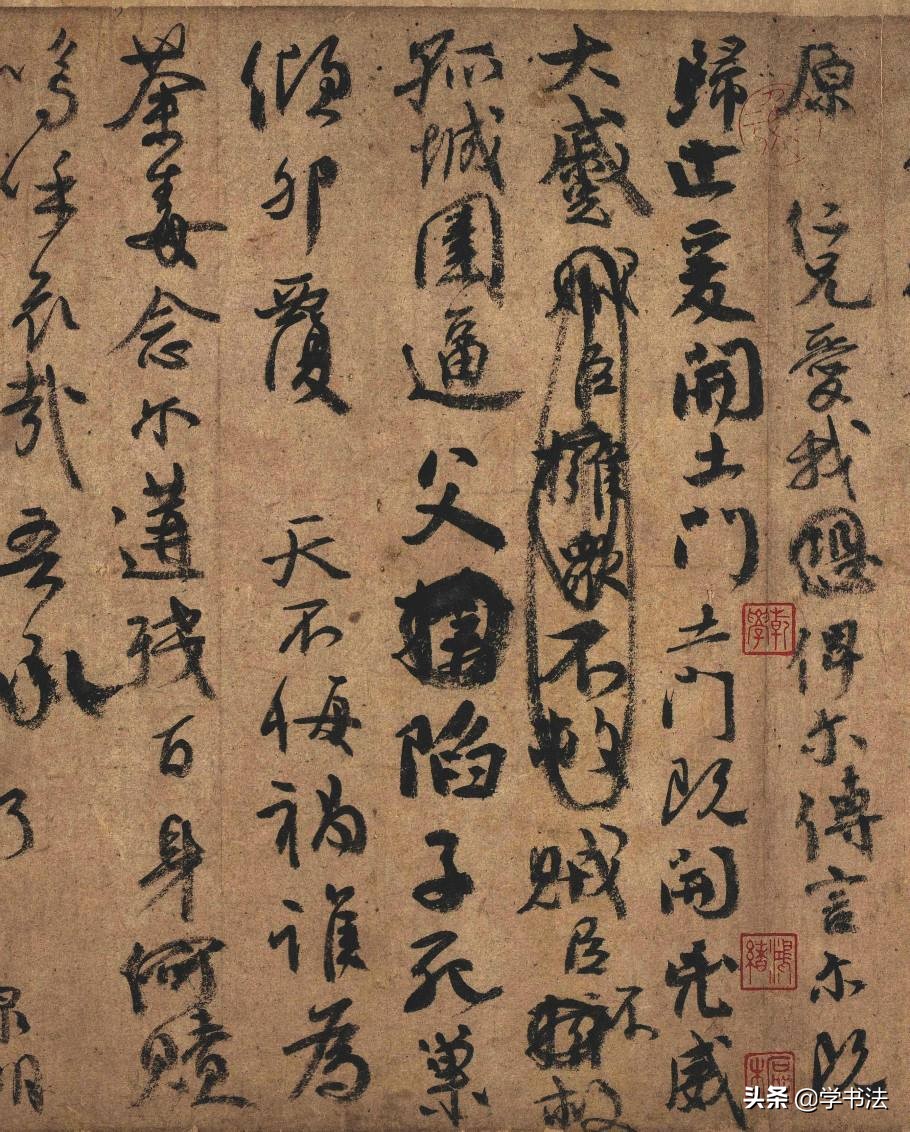 原仁兄愛我俾尔傳言尔既
歸止爰開土門土門既開凶威
大蹙賊臣擁眾不救賊臣不救
孤城圍逼父陷子死巢
傾卵覆天不悔禍誰為
荼毒念尔遘殘百身何贖
嗚乎哀哉吾承
泉明
乾學
头条 @学书法